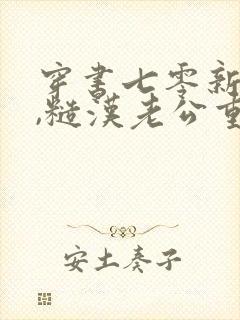 穿书七零新
,糙汉老公重
安土奏子